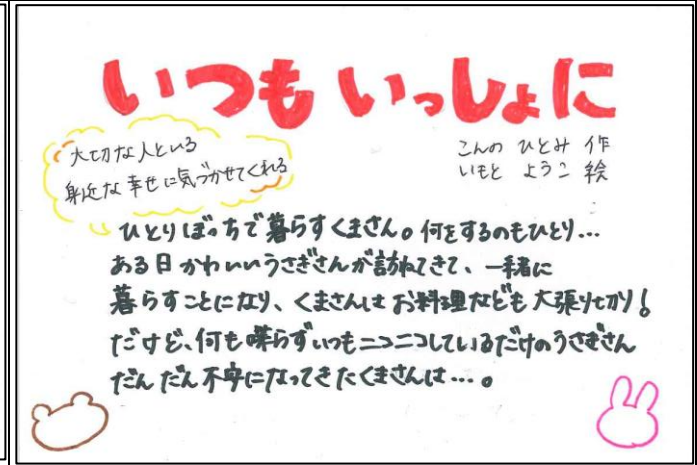 いつも いっしょに
大切な人といる
身近な幸せに気づかせてくれる
こんの ひとみ 作
いもと ようこ 絵
ひとりぼっちで暮らすくまさん。何をするのもひとり…
ある日かわいいうさぎさんが訪ねてきて、一緒に
暮らすことになり、くまさんはお料理なども大張り切り!
だけど、何も喋らずいつもニコニコしているだけのうさぎさん
だんだん不安になってきたくまさんは…。